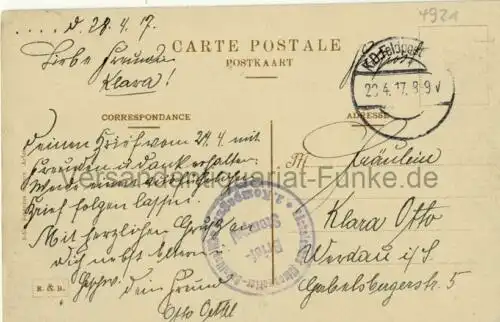 4921
d. 29. 4. 17.
Liebe Freundin
Klara!
CARTE POSTALE
POSTKAART
K.D. Feldpost
29.4.17. 8-9 V
CORRESPONDANCE
ADRESSE
Deinen Brief vom 24. 4. mit
Freuden u. dank erhalten.
Brief folgen lassen.
Mit herzlichen Gruß an
dich nebst Eltern u.
Geschw. Dein Freund
Otto
Fräulein
Klara Otto
Werdau i/S.
Gabelsbergerstr. 5
Versandantiquariat-Funke.de
Brief-
Stempel
E. & B.